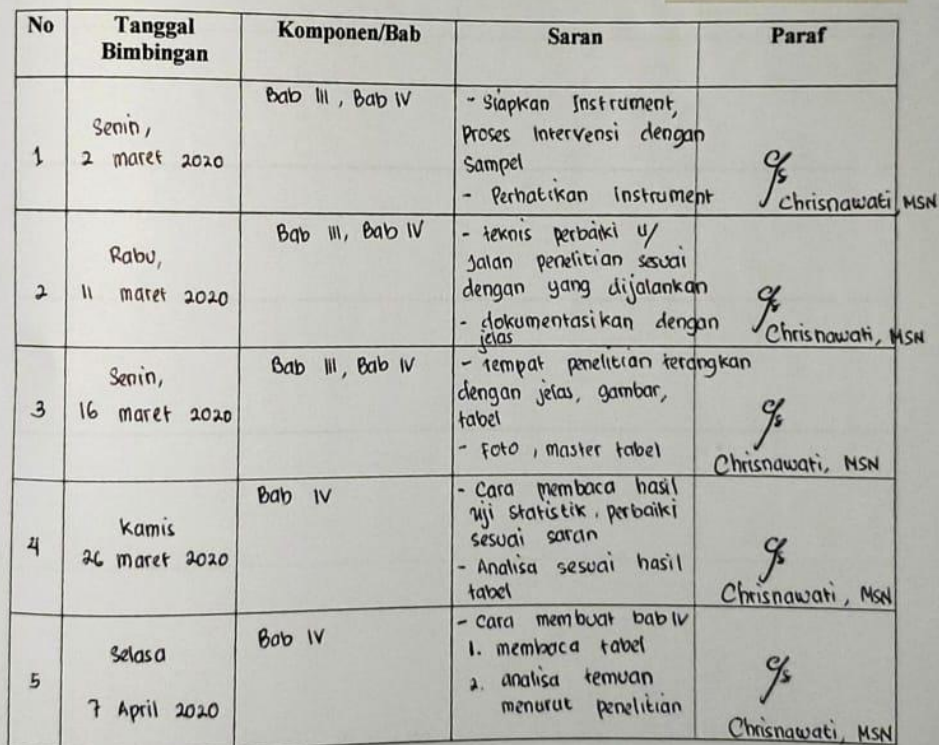 No Tanggal Bimbingan Komponen/Bab Saran Paraf
1
Senin,
2 maret 2020
Bab III, Bab IV
- Siapkan Instrument,
Proses Intervensi dengan
Sampel
- Perhatikan instrument
Chrisnawati, MSN
2
Rabu,
11 maret 2020
Bab III, Bab IV
- teknis perbaiki u/
Jalan penelitian sesuai
dengan yang dijalankan
- dokumentasikan dengan
jelas
Chrisnawati, MSN
3
Senin,
16 maret 2020
Bab III, Bab IV
- Tempat penelitian terangkan
dengan jelas, gambar,
tabel
- Foto, master tabel
Chrisnawati, MSN
4
Kamis
26 maret 2020
Bab IV
- Cara membaca hasil
uji statistik, perbaiki
sesuai saran
- Analisa sesuai hasil
tabel
Chrisnawati, MSN
5
Selasa
7 April 2020
Bab IV
- Cara membuat bab IV
1. membaca tabel
2. analisa temuan
menurut penelitian
Chrisnawati, MSN